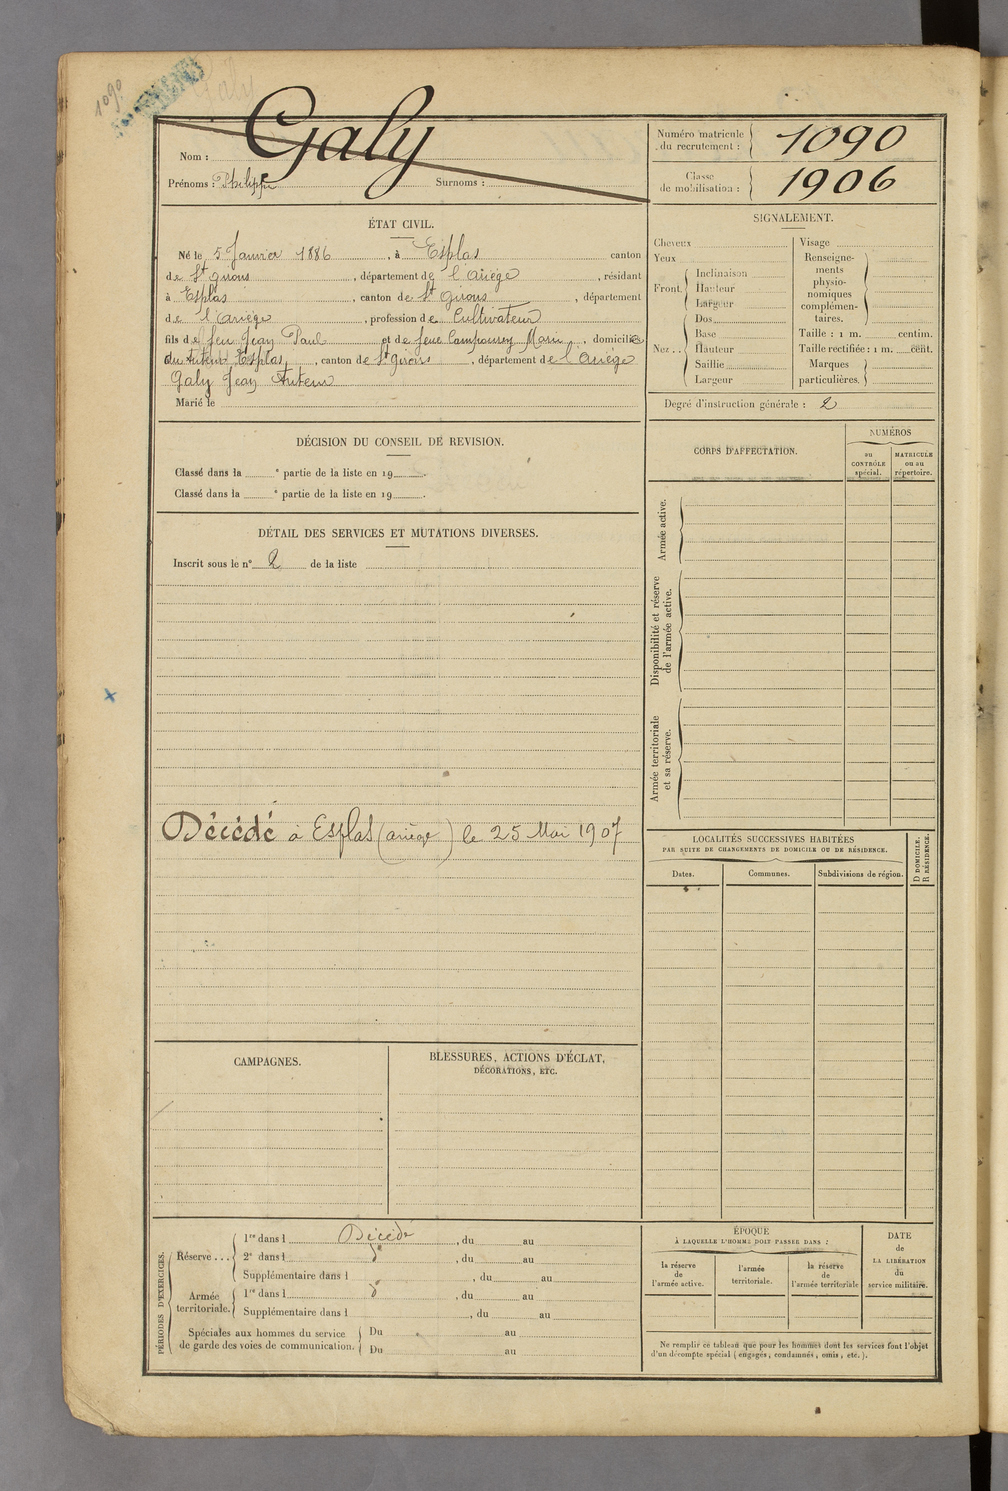 1090
Galy
Nom : Galy
Prénoms : Philippe Surnoms :
Numéro matricule du recrutement : 1090
Classe de mobilisation : 1906
ÉTAT CIVIL.
Né le 5 Janvier 1886, à Esplas canton
de St girons, département de l'ariège, résidant
à Esplas, canton de St girons, département
de l'ariège, profession de Cultivateur
fils de feu Jean Paul et de feue Marie, domiciliés
du tuteur Esplas, canton de St girons, département de l'ariège
Galy Jean tuteur
Marié le
SIGNALEMENT.
Cheveux
Yeux
Front. Inclinaison
Hauteur
Largeur
Nez.. Dos
Base
Hauteur
Saillie
Largeur
Visage
Renseigne-
ments
physio-
nomiques
complémen-
taires.
Taille : 1 m. centim.
Taille rectifiée : 1 m. cent.
Marques
particulières.
Degré d'instruction générale : 2
DÉCISION DU CONSEIL DE REVISION.
Classé dans la e partie de la liste en 19
Classé dans la e partie de la liste en 19
DÉTAIL DES SERVICES ET MUTATIONS DIVERSES.
Inscrit sous le n° 2 de la liste
Décédé à Esplas (ariège) le 25 Mai 1907
CORPS D'AFFECTATION.
NUMÉROS
au
CONTRÔLE
spécial.
MATRICULE
ou au
répertoire.
Armée active.
Disponibilité et réserve
de l'armée active.
Armée territoriale
et sa réserve.
LOCALITÉS SUCCESSIVES HABITÉES
PAR SUITE DE CHANGEMENTS DE DOMICILE OU DE RÉSIDENCE.
D DOMICILE.
R RÉSIDENCE.
Dates. Communes. Subdivisions de région.
CAMPAGNES.
BLESSURES, ACTIONS D'ÉCLAT,
DÉCORATIONS, ETC.
PÉRIODES D'EXERCICES.
Réserve... 1re dans l Décédé, du au
2e dans l do, du au
Supplémentaire dans l, du au
Armée territoriale. 1re dans l do, du au
Supplémentaire dans l, du au
Spéciales aux hommes du service
de garde des voies de communication.
Du au
Du au
ÉPOQUE
À LAQUELLE L'HOMME DOIT PASSER DANS :
la réserve
de
l'armée active.
l'armée
territoriale.
la réserve
de
l'armée territoriale
DATE
de
LA LIBÉRATION
du
service militaire.
Ne remplir ce tableau que pour les hommes dont les services font l'objet
d'un décompte spécial (engagés, condamnés, omis, etc.).